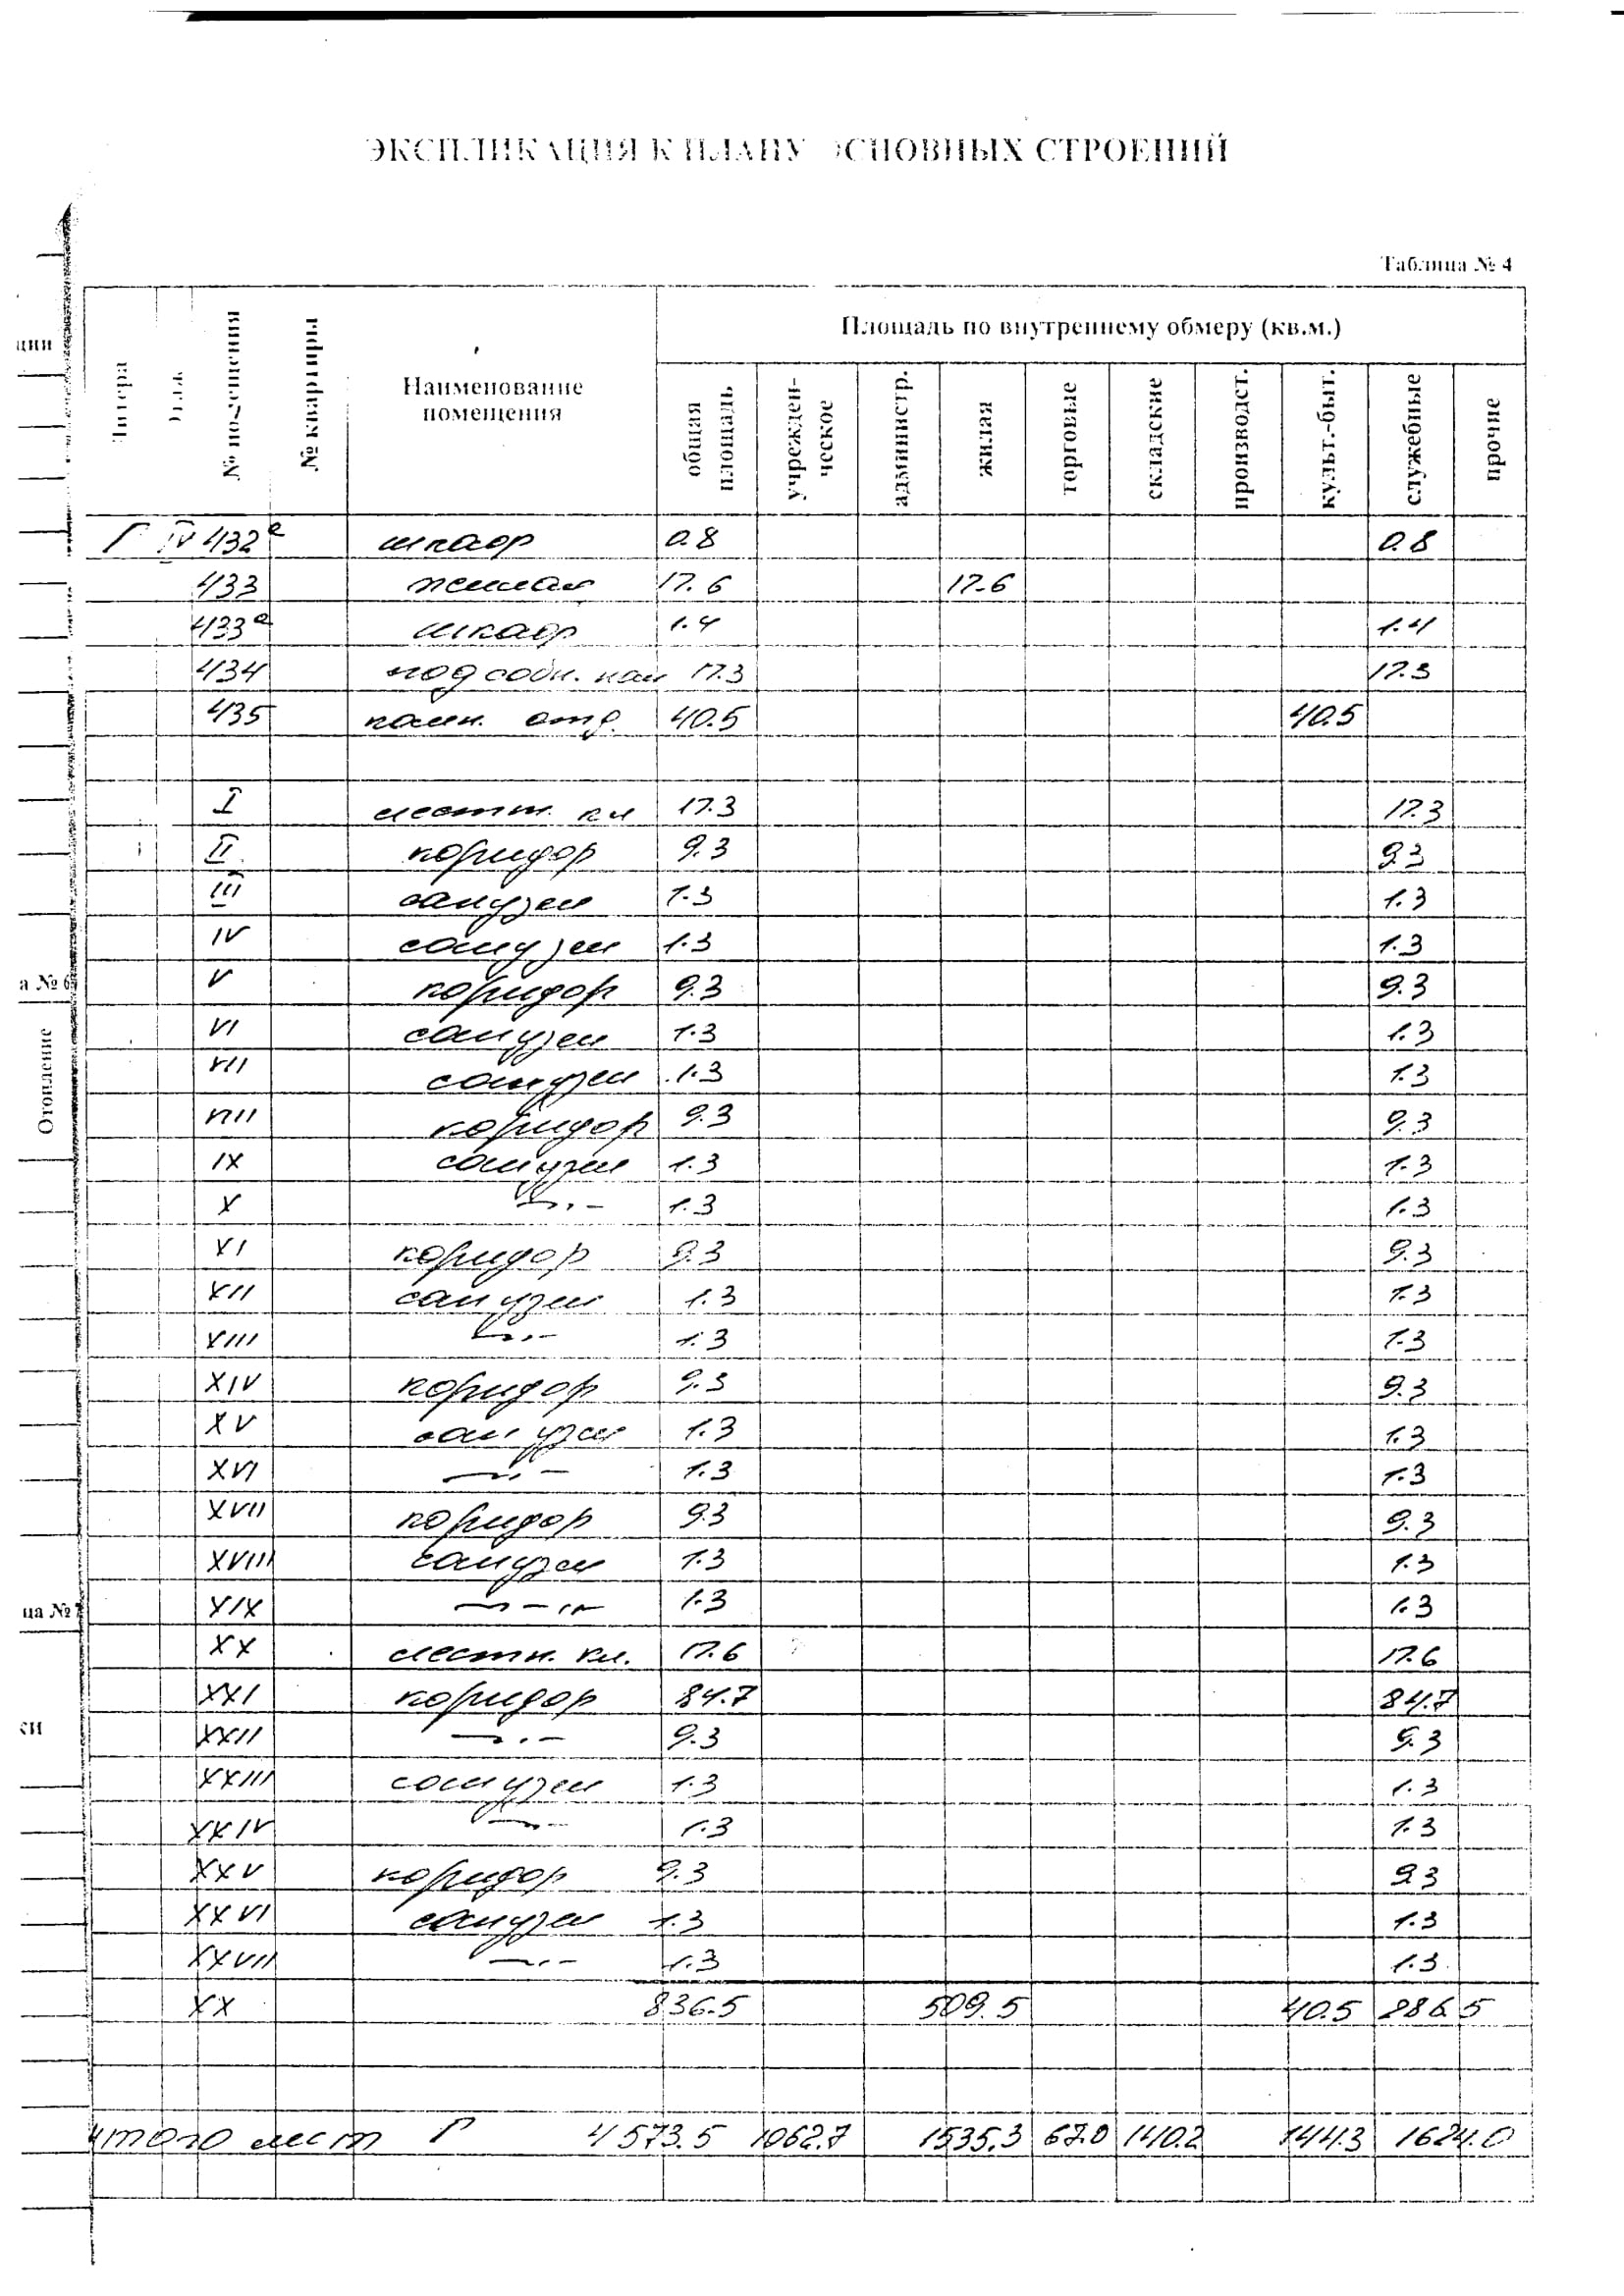 ЭКСПЛИКАЦИЯ К ПЛАНУ ОСНОВНЫХ СТРОЕНИЙ
Таблица № 4
ции
Литера
Этаж
№ помещения
№ квартиры
Наименование помещения
Площадь по внутреннему обмеру (кв.м.)
общая площадь
учрежден-ческое
администр.
жилая
торговые
складские
производст.
культ.-быт.
служебные
прочие
Г IV 432а шкаф 0.8 0.8
433 жилая 17.6 17.6
433а шкаф 1.4 1.4
434 подсобн. 17.3 17.3
435 комн. отд. 40.5 40.5
I лестн. кл 17.3 17.3
II коридор 9.3 9.3
III санузел 1.3 1.3
IV санузел 1.3 1.3
а № 6
V коридор 9.3 9.3
VI санузел 1.3 1.3
Отопление
VII санузел 1.3 1.3
VIII коридор 9.3 9.3
IX санузел 1.3 1.3
X —„— 1.3 1.3
XI коридор 9.3 9.3
XII санузел 1.3 1.3
XIII —„— 1.3 1.3
XIV коридор 9.3 9.3
XV санузел 1.3 1.3
XVI —„— 1.3 1.3
XVII коридор 9.3 9.3
XVIII санузел 1.3 1.3
ца № 7
XIX —„— 1.3 1.3
XX лестн. кл. 17.6 17.6
XXI коридор 84.7 84.7
ки
XXII —„— 9.3 9.3
XXIII санузел 1.3 1.3
XXIV —„— 1.3 1.3
XXV коридор 9.3 9.3
XXVI санузел 1.3 1.3
XXVII —„— 1.3 1.3
XX 836.5 509.5 40.5 286.5
Итого Г 4573.5 1062.7 1535.3 67.0 140.2 144.3 1624.0